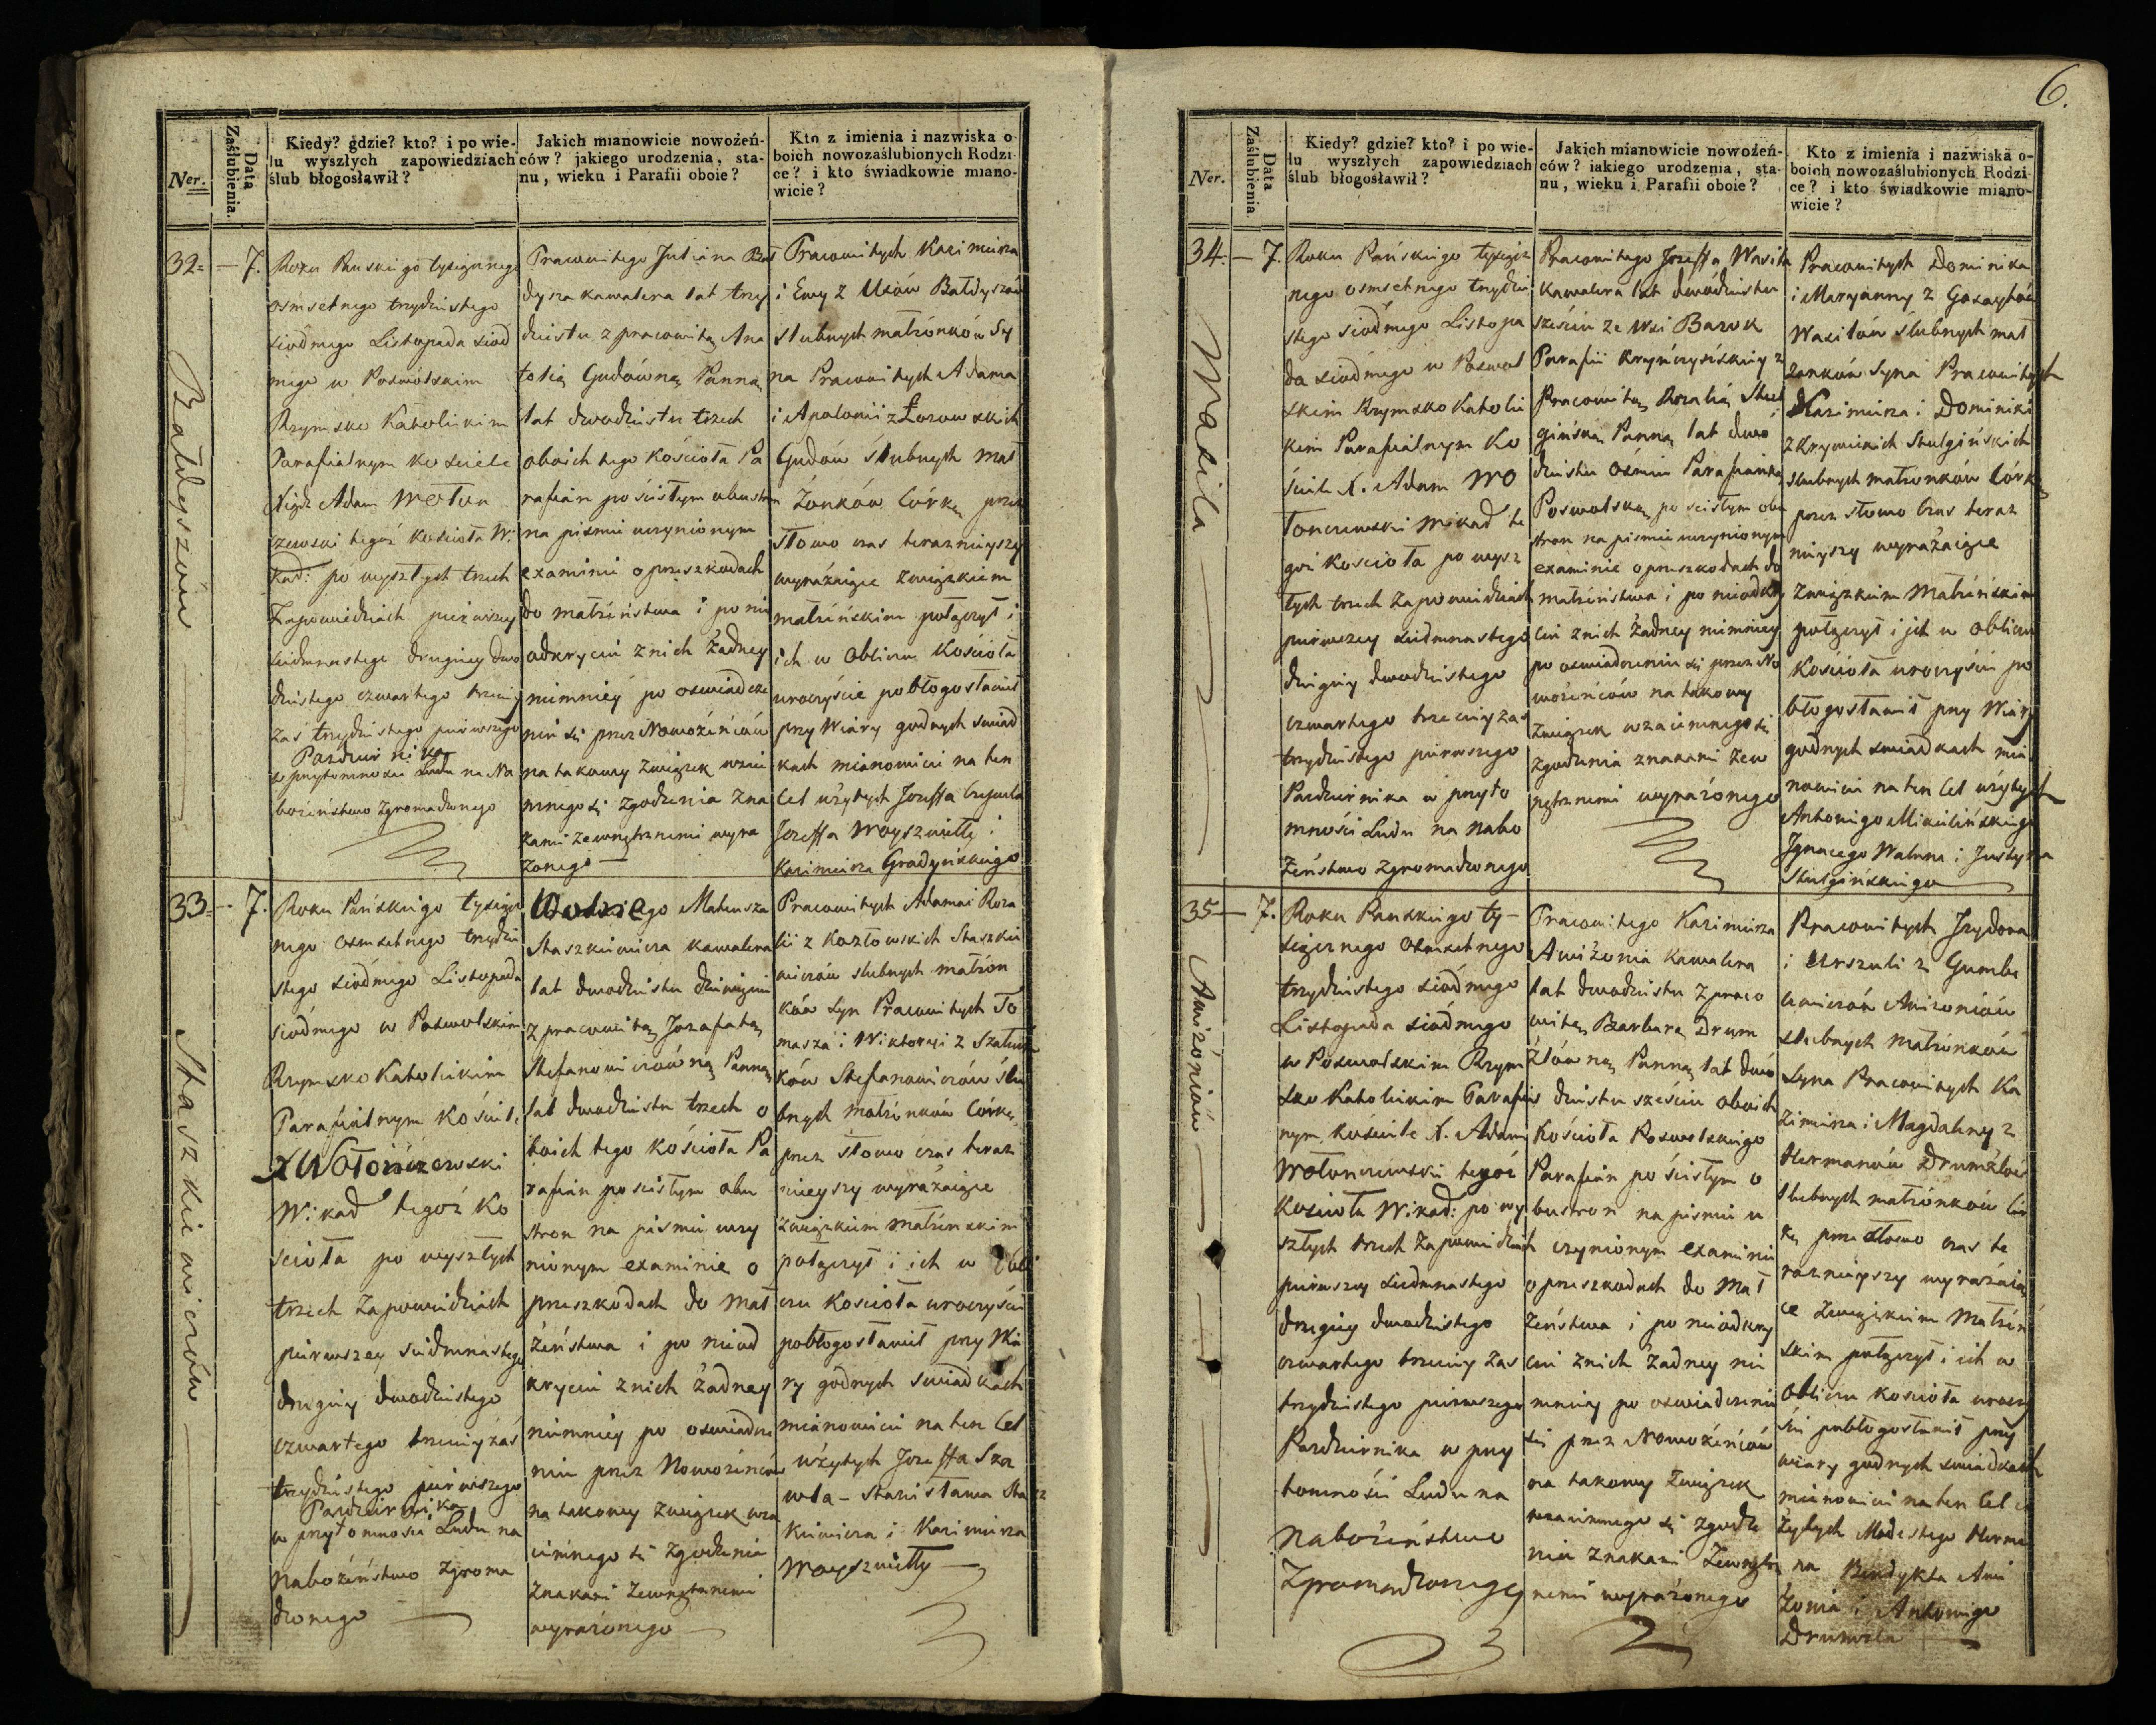 Ner.
Data Zaślubienia.
Kiedy? gdzie? kto? i po wie-
lu wyszłych zapowiedziach
ślub błogosławił?
Jakich mianowicie nowożeń-
ców? jakiego urodzenia, sta-
nu, wieku i Parafii oboie?
Kto z imienia i nazwiska o-
boich nowozaślubionych Rodzi-
ce? i kto świadkowie miano-
wicie?
32 = — 7.
Bałdyszów
Roku Panskiego tysiącznego
osmsetnego trzydziestego
siodmego Listopada siod
mego w Poswolskim
Rzymsko Katolickim
Parafialnym kosciele
Xiądz Adam Wołon
czewski tegoż kościoła Wi
kad: po wyszłych trzech
Zapowiedziach pierwszey
siedmnastego drugiey dwo
dziestego czwartego trzeciey
zaś trzydziestego pierwszego
Pazdziernika
w przytomnosci Ludu na Na
bożeństwo zgromadzonego
Pracowitego Juliana Bał
dysza kawalera lat trzy
dziestu z pracowitą Ana
tolią Gudówną Panną
lat dwodziestu trzech
oboich tego kościoła Pa
rafian po ścisłym obustron
na pismie uczynionym
examinie o przeszkodach
do małżeństwa i po nie
odkryciu z nich żadney
niemniey po oswiadcze
niu się przez Nowożeńców
na takowy związek wzaie
mnego się zgodzenia zna
kami zewnętrznemi wyra
żonego —
Pracowitych Kazimierza
i Ewy z Uzów Bałdyszów
slubnych małżonków Sy
na Pracowitych Adama
i Apolonii z Łozowskich
Gudów ślubnych mał
żonków Córkę przez
słowo czas teraznieyszy
wyrażaiące związkiem
małżeńskim połączył i
ich w obliczu Kościoła
uroczyście pobłogosławił
przy Wiary godnych swiad
kach mianowicie na ten
Cel użytych Jozeffa
Jozeffa Woyszwiłły i
Kazimierza Gradzynskiego
33 = — 7.
Staszkiewiczów
Roku Pańskiego tysiącz
nego osmsetnego trzydzie
stego siódmego Listopada
siódmego w Poswolskim
Rzymsko Katolickim
Parafialnym Kościele
X Wołonczewski
Wikad tegoż Ko
scioła po wyszłych
trzech Zapowiedziach
pierwszey siedmnastego
drugiey dwodziestego
czwartego trzeciey zaś
trzydziestego pierwszego
Pazdziernika
w przytomnosci Ludu na
nabożeństwo zgroma
dzonego —
Mateusza
Staszkiewicza kawalera
lat dwodziestu dziewięciu
z pracowitą Jozafatą
Stefanowiczówną Panną
lat dwodziestu trzech o
boich tego kościoła Pa
rafian po scisłym obu
stron na pismie uczy
nionym examinie o
przeszkodach do mał
żeństwa i po nieod
kryciu z nich żadney
niemniey po oswiadcze
niu przez Nowożeńców
na takowy związek wza
iemnego się zgodzenia
znakami zewnętrznemi
wyrażonego —
Pracowitych Adama i Roza
lii z Kozłowskich Staszkie
wiczów slubnych małżon
ków Syn Pracowitych To
masza i Wiktoryi z
ków Stefanowiczów ślu
bnych małżonków Córkę,
przez słowo czas teraz
nieyszy wyrażaiące
związkiem małżenskim
połączył i ich w obli
czu Kościoła uroczyście
pobłogosławił przy Wia
ry godnych swiadkach
mianowicie na ten Cel
użytych Jozeffa Sza
wła — Stanisława Stasz
kiewicza i Kazimierza
Woyszwiłły —
6.
Ner.
Data Zaślubienia.
Kiedy? gdzie? kto? i po wie-
lu wyszłych zapowiedziach
ślub błogosławił?
Jakich mianowicie nowożeń-
ców? iakiego urodzenia, sta-
nu, wieku i Parafii oboie?
Kto z imienia i nazwiska o-
boich nowozaślubionych Rodzi-
ce? i kto świadkowie miano-
wicie?
34. — 7.
Wasila
Roku Pańskiego tysiącz
nego osmsetnego trzydzie
stego siodmego Listopa
da siodmego w Poswol
skim Rzymsko Katolic
kim Parafialnym Ko
ściele X. Adam Wo
łonczewski Wikad te
goż Kościoła po wysz
łych trzech Zapowiedziach
pierwszey siedmnastego
drugiey dwodziestego
czwartego trzeciey zas
trzydziestego pierwszego
Pazdziernika w przyto
mności Ludu na nabo
żeństwo zgromadzonego
Pracowitego Jozeffa Wasila
kawalera lat dwodziestu
sześciu ze Wsi Barok
Parafii Krynczyńskiey z
Pracowitą Rozalią Stul
gińską Panną lat dwo
dziestu osmiu Parafianką
Poswolską, po scisłym obu
stron na pismie uczynionym
examinie o przeszkodach do
małżeństwa i po nieodkry
ciu z nich żadney niemniey
po oswiadczeniu się przez No
wożeńców na takowy
związek wzaiemnego się
zgodzenia znakami zew
nętrznemi wyrażonego
Pracowitych Dominika
i Maryanny z
Wasilów ślubnych mał
żonków Syna Pracowitych
Kazimierza i Dominiki
z Krywickich Stulgińskich
slubnych małżonków Córkę
przez słowo czas teraz
nieyszy wyrażaiące
związkiem Małżeńskim
połączył i ich w obliczu
Kościoła uroczyście po
błogosławił przy Wiary
godnych swiadkach mia
nowicie na ten Cel użytych
Antoniego Mikulińskiego
Ignacego Waluna i Justyna
Stulgińskiego —
35 — 7.
Awiżoniów
Roku Panskiego ty-
siącznego osmsetnego
trzydziestego siódmego
Listopada siódmego
w Poswolskim Rzym
sko Katolickim Parafial
nym kościele X. Adam
Wołonczewski tegoż
Kościoła Wikad: po wy
szłych trzech zapowiedziach
pierwszey siedmnastego
drugiey dwodziestego
czwartego trzeciey zas
trzydziestego pierwszego
Pazdziernika w przy
tomności Ludu na
nabożeństwo
Zgromadzonego
Pracowitego Kazimierza
Awiżonia Kawalera
lat dwodziestu z praco
witą Barbarą Drum
źlówną Panną lat dwo
dziestu sześciu oboich
Kościoła Poswolskiego
Parafian po ścisłym o
bustron na pismie u
czynionym examinie
o przeszkodach do Mał
żeństwa i po nieodkry
ciu z nich żadney nie
mniey po oswiadczeniu
się przez Nowożeńców
na takowy związek
wzaiemnego się zgodze
nia znakami zewnętrz
nemi wyrażonego
Pracowitych Izydora
i Urszuli z Gumbe
lewiczów Awizoniów
slubnych małżonków
Syna Pracowitych Ka
zimierza i Magdaleny z
Hermanów Drumźlów
slubnych małżonków Cór
kę przez słowo czas te
raznieyszy wyrażaią
ce związkiem Małżeń
skim połączył i ich w
obliczu kościoła uroczy
ście pobłogosławił przy
wiary godnych swiadkach
mianowicie na ten Cel u
żytych Modestego Herma
na Benedykta Awi
żonia i Antoniego
Drumzla —